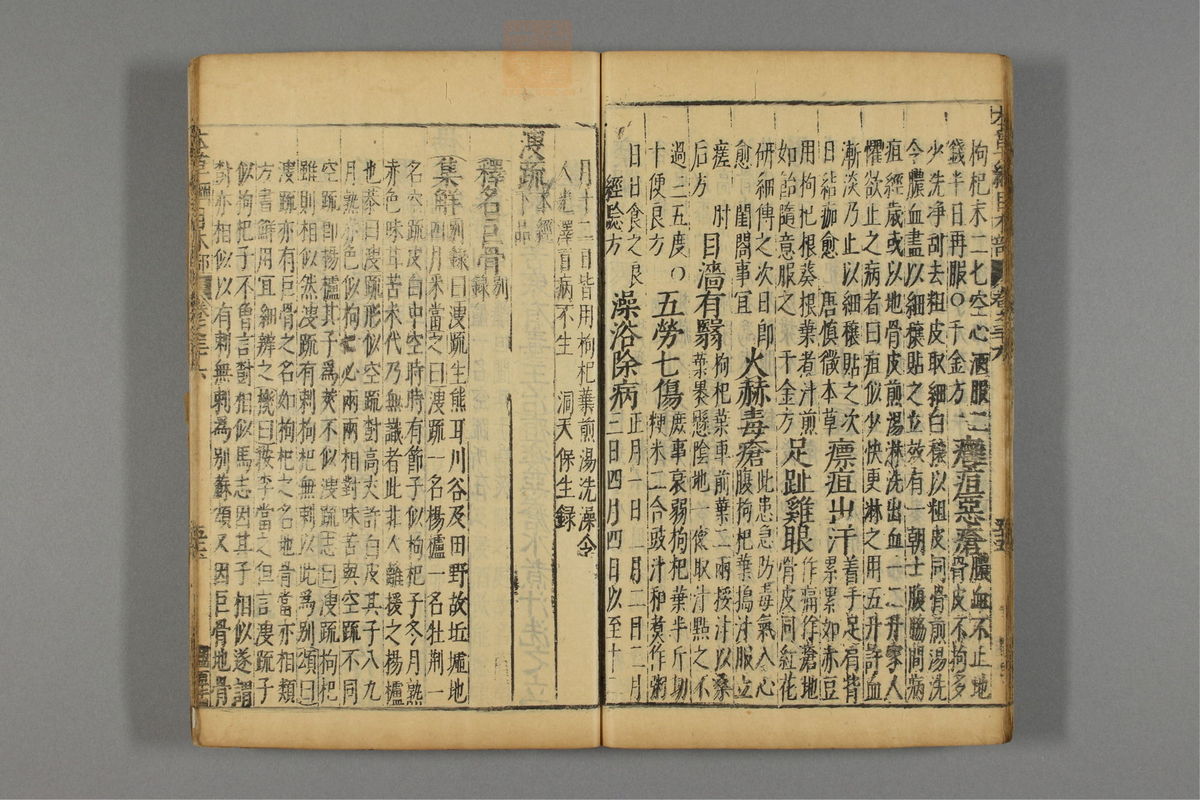 枸杞末二七空心酒服二
錢半日再服○千金方
癰疽惡瘡
膿血不止地
骨皮不拘多
少洗淨刮去粗皮取細白穰以粗皮同骨煎湯洗
令膿血盡以細穰貼之立效有一朝士腹脇間病
疽經歲或以地骨皮煎湯淋洗出血一二升家人
懼欲止之病者曰疽似少快更淋之用五升許血
漸淡乃止以細穰貼之次
日結痂愈 唐慎微本草
瘭疽出汗
着手足肩背
累累如赤豆
用枸杞根葵根葉煮汁煎
如飴隨意服之 千金方
足趾雞眼
作痛作瘡地
骨皮同紅花
研細傅之次日即
愈 閨閣事宜
火赫毒瘡
此患急防毒氣入心
腹枸杞葉搗汁服立
瘥 肘
后方
目濇有翳
枸杞葉車前葉二兩挼汁以桑
葉裹懸陰地一夜取汁點之不
過三五度○
十便良方
五勞七傷
庶事衰弱枸杞葉半斤切
粳米二合豉汁和煮作粥
日日食之良
經驗方
澡浴除病
正月一日二月二日三月
三日四月四日以至十二
本草綱目木部 卷之三十六
月十二日皆用枸杞葉煎湯洗澡令
人光澤百病不生 洞天保生録
溲疏
本經
下品
釋名巨骨
别
録
集解
别録曰溲疏生熊耳川谷及田野故丘墟地
四月采當之曰溲疏一名楊櫨一名牡荆一
名空疏皮白中空時時有節子似枸杞子冬月熟
赤色味甘苦末代乃無識者此非人籬援之楊櫨
也恭曰溲疏形似空疏樹高丈許白皮其子八九
月熟赤色似枸杞必兩兩相對味苦與空疏不同
空疏即楊櫨其子爲莢不似溲疏志曰溲疏枸杞
雖則相似然溲疏有刺枸杞無刺以此爲别頌曰
溲疏亦有巨骨之名如枸杞之名地骨當亦相類
方書鮮用宜細辨之機曰按李當之但言溲疏子
似枸杞子不曾言樹相似馬志因其子相似遂謂
樹亦相似以有刺無刺爲别蘇頌又因巨骨地骨